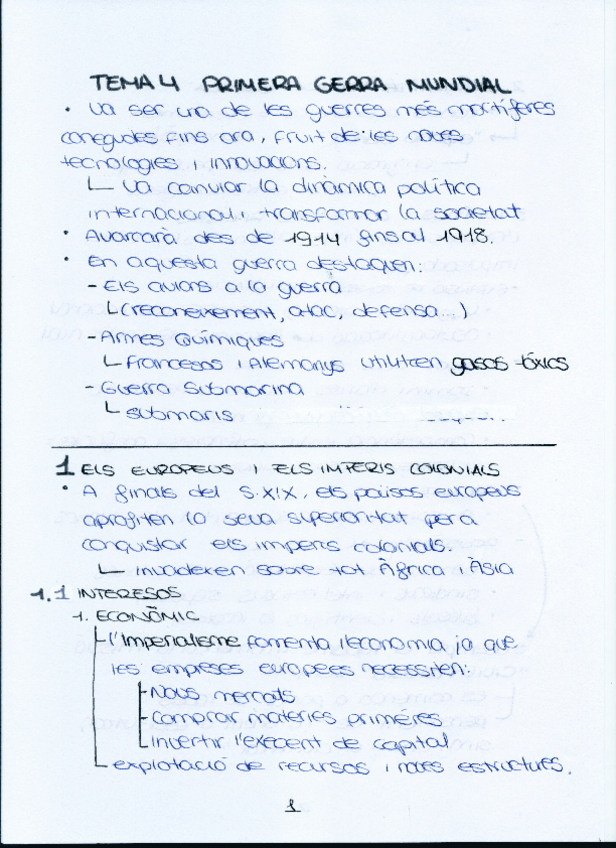 TEMA 4 PRIMERA GERRA MUNDIAL
• Va ser una de les guerres més mortíferes
conegudes fins ara, fruit de les noves
tecnologies i innovacions.
└ Va canviar la dinàmica política
internacional i transformar la societat
• Avarcarà des de 1914 fins al 1918.
• En aquesta guerra destaquen:
- Els avions a la guerra
└(reconeixement, atac, defensa...)
- Armes Químiques
└ Francesos i Alemanys utilitzen gasos tòxics
- Guerra Submarina
└ submaris
1 ELS EUROPEUS I ELS IMPERIS COLONIALS
• A finals del S.XIX, els països europeus
aprofiten la seva superioritat per a
conquistar els imperis colonials.
└ invadeixen sobre tot Àfrica i Àsia
1.1 INTERESOS
1. ECONÒMIC
L'Imperialisme fomenta l'economia ja que
les empreses europees necessiten:
Nous mercats
Comprar matèries primères
Invertir l'excent de capital
explotació de recursos i noves estructures.
1